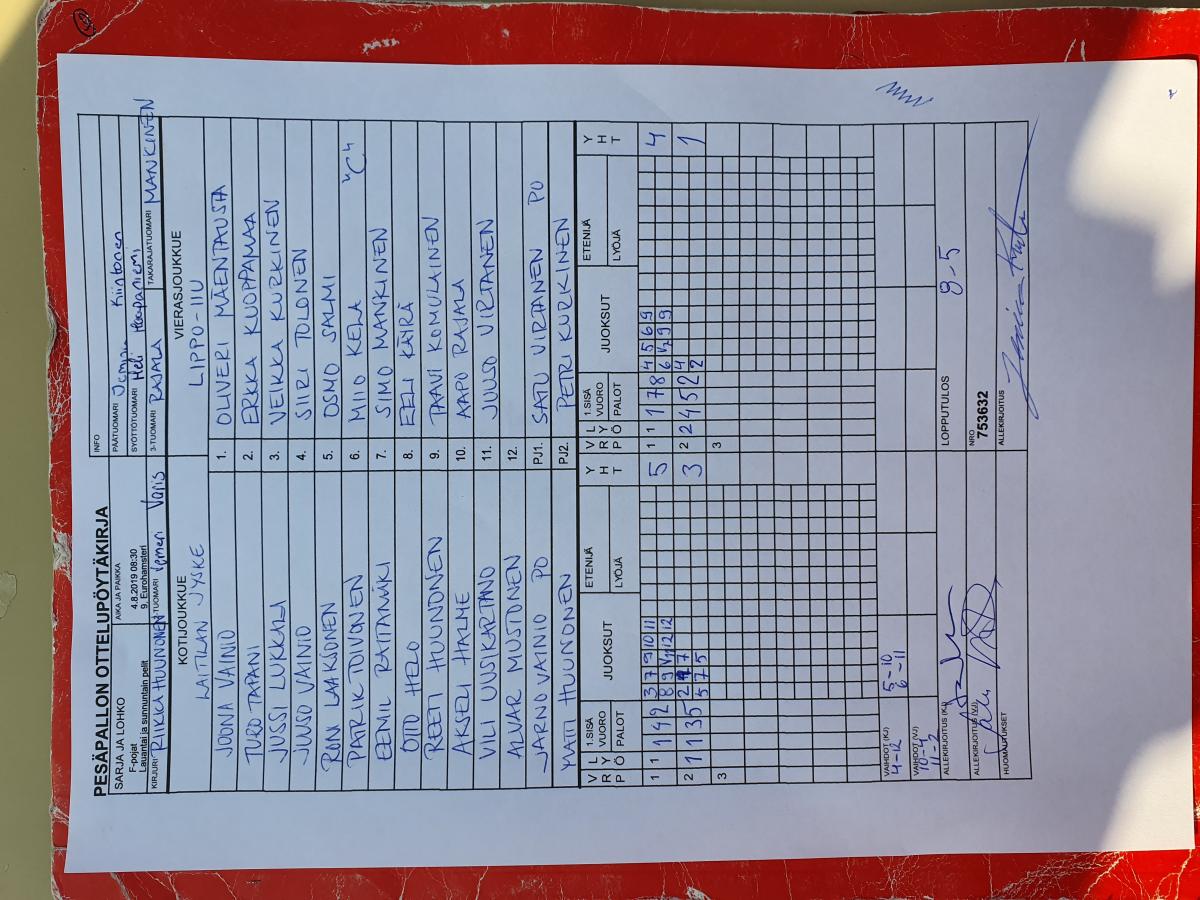 PESÄPALLON OTTELUPÖYTÄKIRJA
SARJA JA LOHKO
F-pojat
Lauantai ja sunnuntain pelit
AIKA JA PAIKKA
4.8.2019 08:30
9, Eurohamsteri
INFO
PÄÄTUOMARI Kiintonen
SYÖTTÖTUOMARI Heli Haapaniemi
KIRJURI RIIKKA HUUNONEN
2-TUOMARI Varis
3-TUOMARI RAJALA
TAKARAJATUOMARI MANKINEN
KOTIJOUKKUE VIERASJOUKKUE
LAITILAN JYSKE LIPPO-IIU
JOONA VAINIO 1. OLIVERI MÄENTAUSTA
TURO TAPANI 2. ERKKA KUOPPAMAA
JUSSI LUKKALA 3. VEIKKA KURKINEN
JUUSO VAINIO 4. SIIRI TOLONEN
RONI LAAKSONEN 5. OSMO SALMI
PATRIK TOIVONEN 6. MIIO KELA "C"
EEMIL RAITAMÄKI 7. SIMO MANKINEN
OTTO HELO 8. EELI KÄIRÄ
REETI HUUNONEN 9. TAAVI KOMULAINEN
AKSELI HALME 10. AAPO RAJALA
VILI UUSIKARTANO 11. JUUSO VIRTANEN
ALVAR MUSTONEN 12.
JARNO VAINIO PO PJ1. SATU VIRTANEN PO
MATTI HUUNONEN PJ2. PETRI KURKINEN
V R P L Y Ö 1.SISÄ VUORO PALOT JUOKSUT ETENIJÄ LYÖJÄ Y H T V R P L Y Ö 1.SISÄ VUORO PALOT JUOKSUT ETENIJÄ LYÖJÄ Y H T
1 1 1 4 2 3 7 9 10 11 5 1 1 1 7 8 4 5 6 9 4
8 9 V1 12 12 6 V7 9 9
2 1 1 3 5 2 4 7 3 2 2 4 5 2 4 1
5 7 5 2
3 3
VAIHDOT (KJ)
4-12 5-10
6-11
VAIHDOT (VJ)
10-1
11-2
ALLEKIRJOITUS (KJ)
LOPPUTULOS 8-5
ALLEKIRJOITUS (VJ)
NRO
753632
HUOMAUTUKSET
ALLEKIRJOITUS